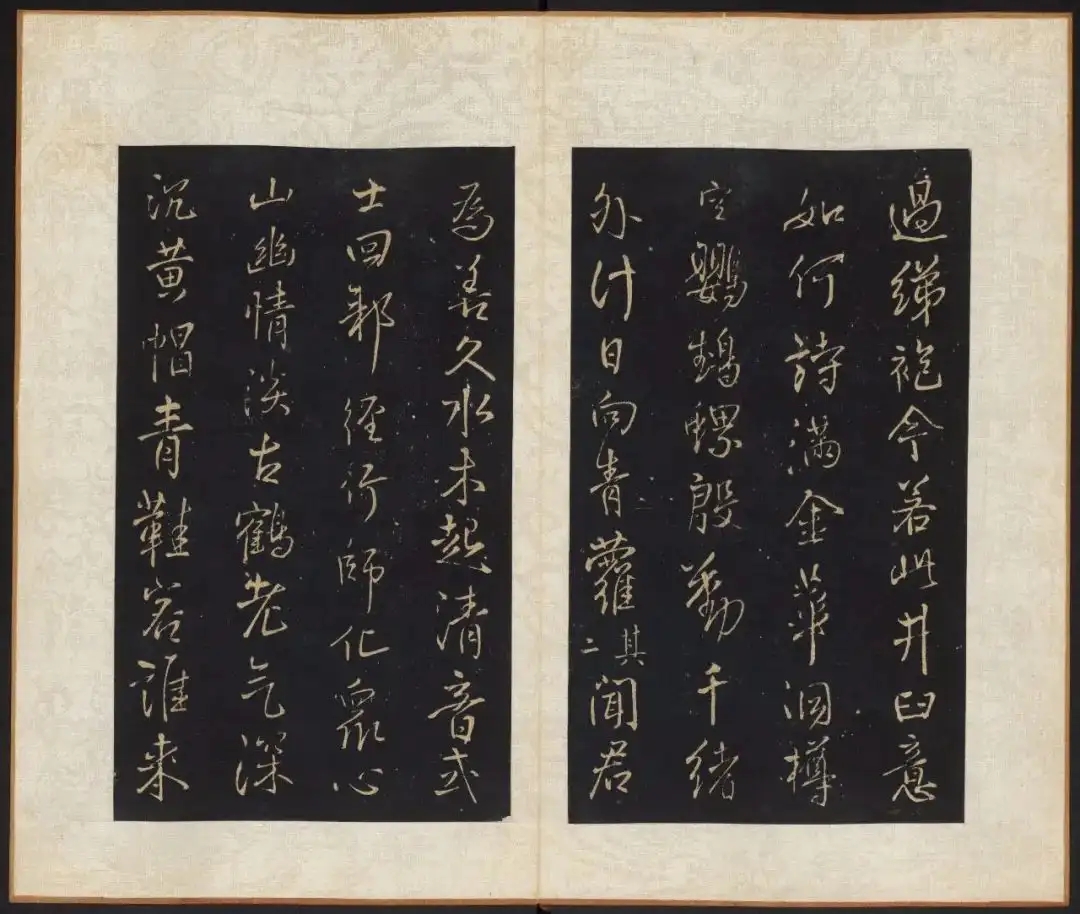 過綈袍今若此井臼意
如何詩滿金華洞樽
空鸚鵡螺殷勤千緒
外計日向青蘿其二聞君
為善久水木起清音式
士回鄰徑行師化眾心
山幽情淡古鶴老气深
沉黃帽青鞋客誰來